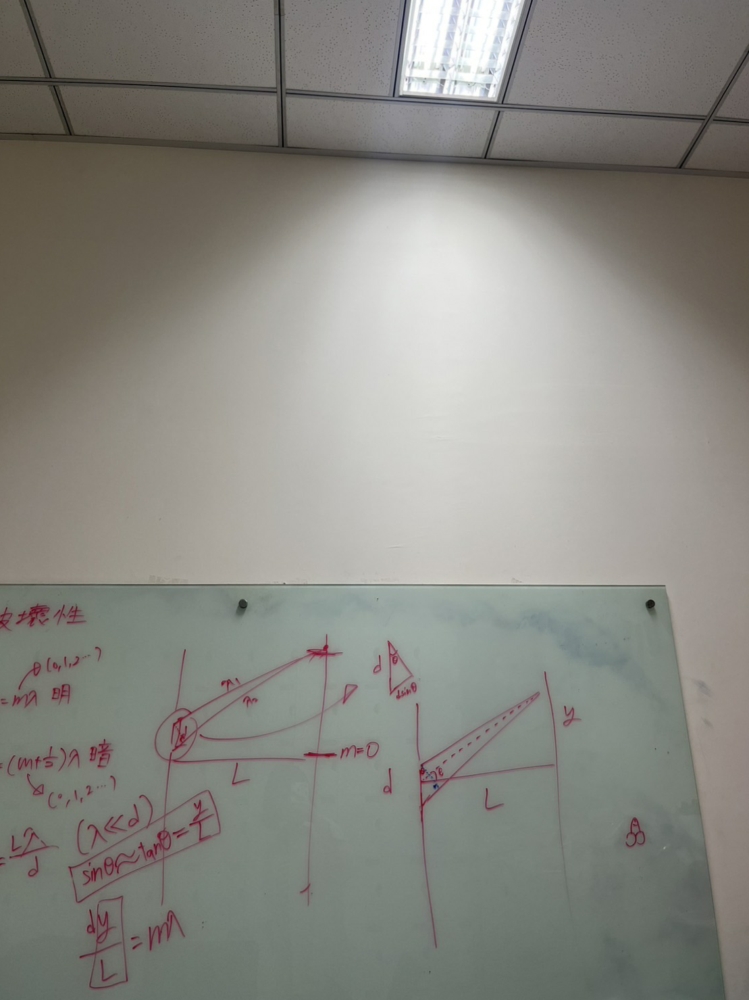 破壞性
(0,1,2…)
=mλ 明
=(m+½)λ 暗
(0,1,2…)
=Lλ/d
(λ≪d)
sinθ≈tanθ=y/L
dy/L=mλ
r₁
r₂
d
L
m=0
d
θ
dsinθ
d
θ
L
y